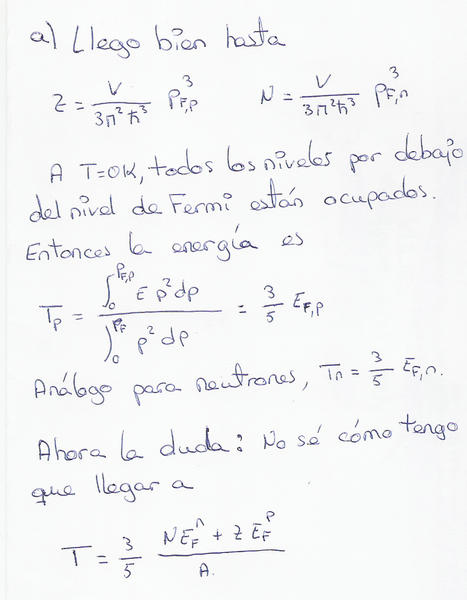 a) Llego bien hasta
Z = V / 3π²ħ³ P_{F,p}³    N = V / 3π²ħ³ P_{F,n}³
A T=0K, todos los niveles por debajo
del nivel de Fermi están ocupados.
Entonces la energía es
T_p = ∫₀^{P_{F,p}} E p² dp / ∫₀^{P_F} p² dp = 3/5 E_{F,p}
Análogo para neutrones, T_n = 3/5 E_{F,n}.
Ahora la duda: No sé cómo tengo
que llegar a
T = 3/5 (N E_F^n + Z E_F^p) / A.